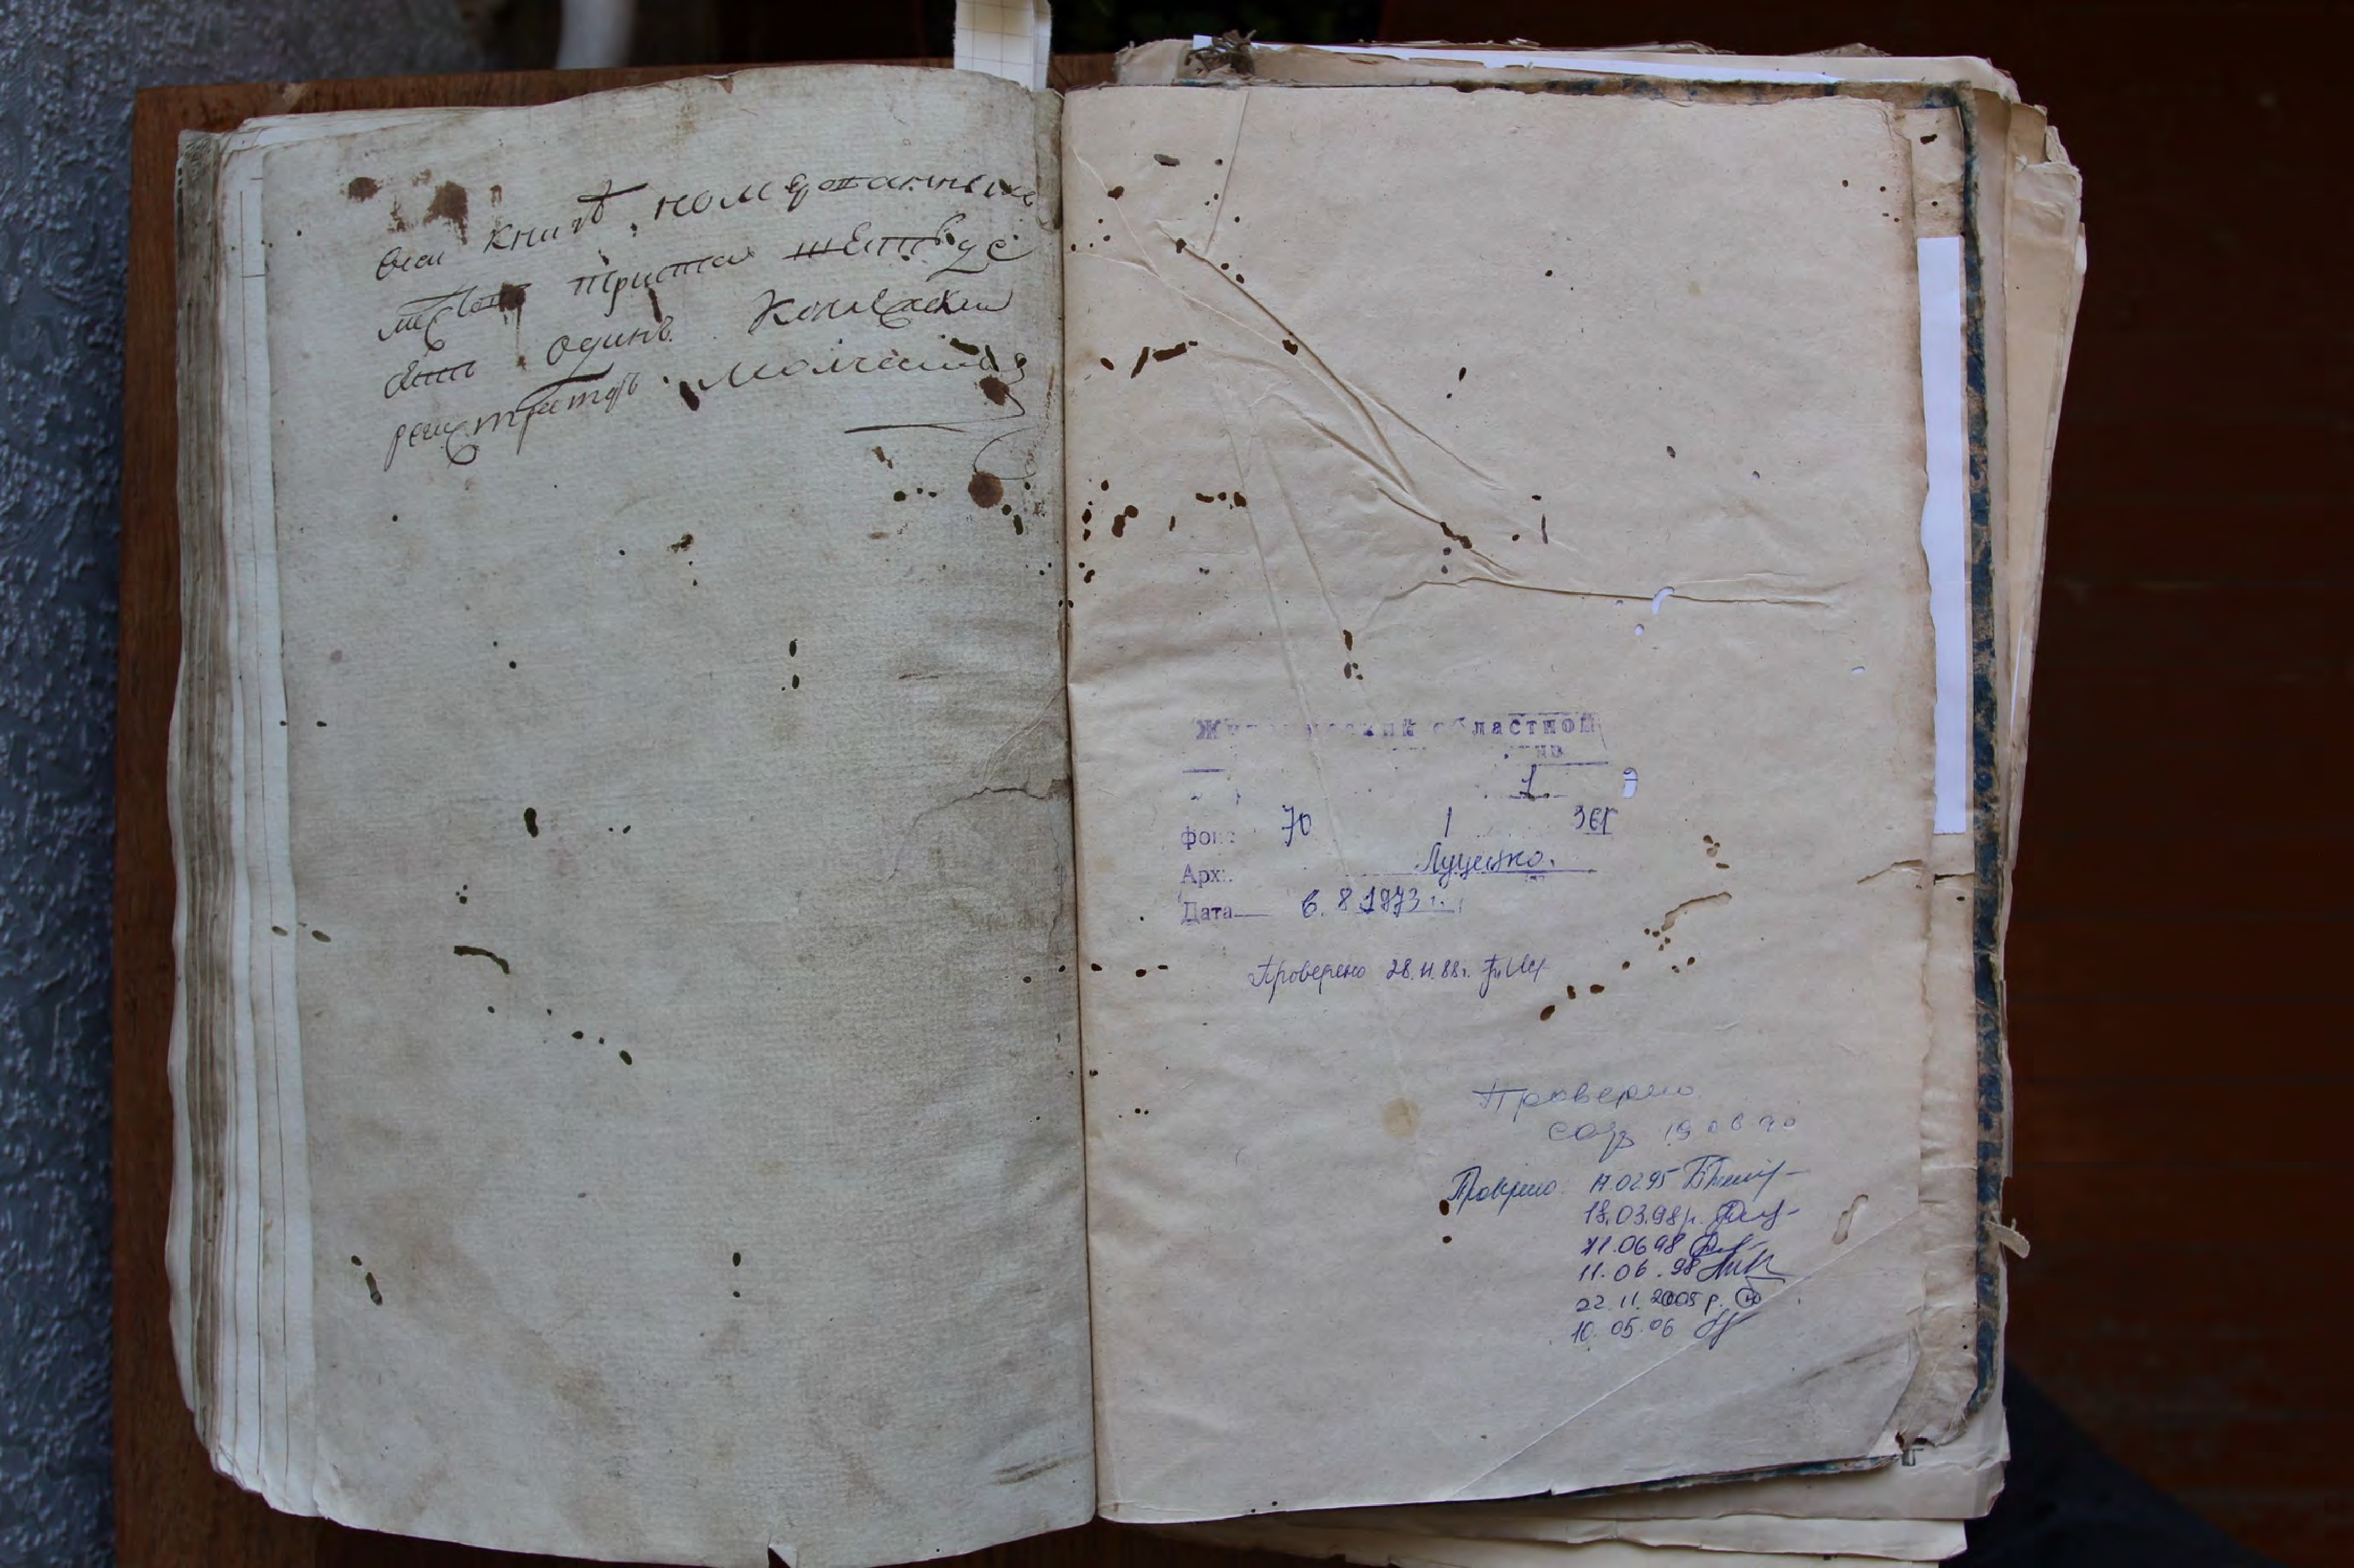 сеи книгѣ номерованныхъ
листовъ триста шестьде
сятъ одинъ
регистраторъ
Житомирский областной
1
фон 70 1 361
Арх. Луценко.
Дата 6. 8 1973 г.
Проверено 28.11.88г.
Проверено
19 06 90
Проверено 17.02.95
18.03.98р.
11.06 98
11.06.98
22.11.2005 р.
10.05.06